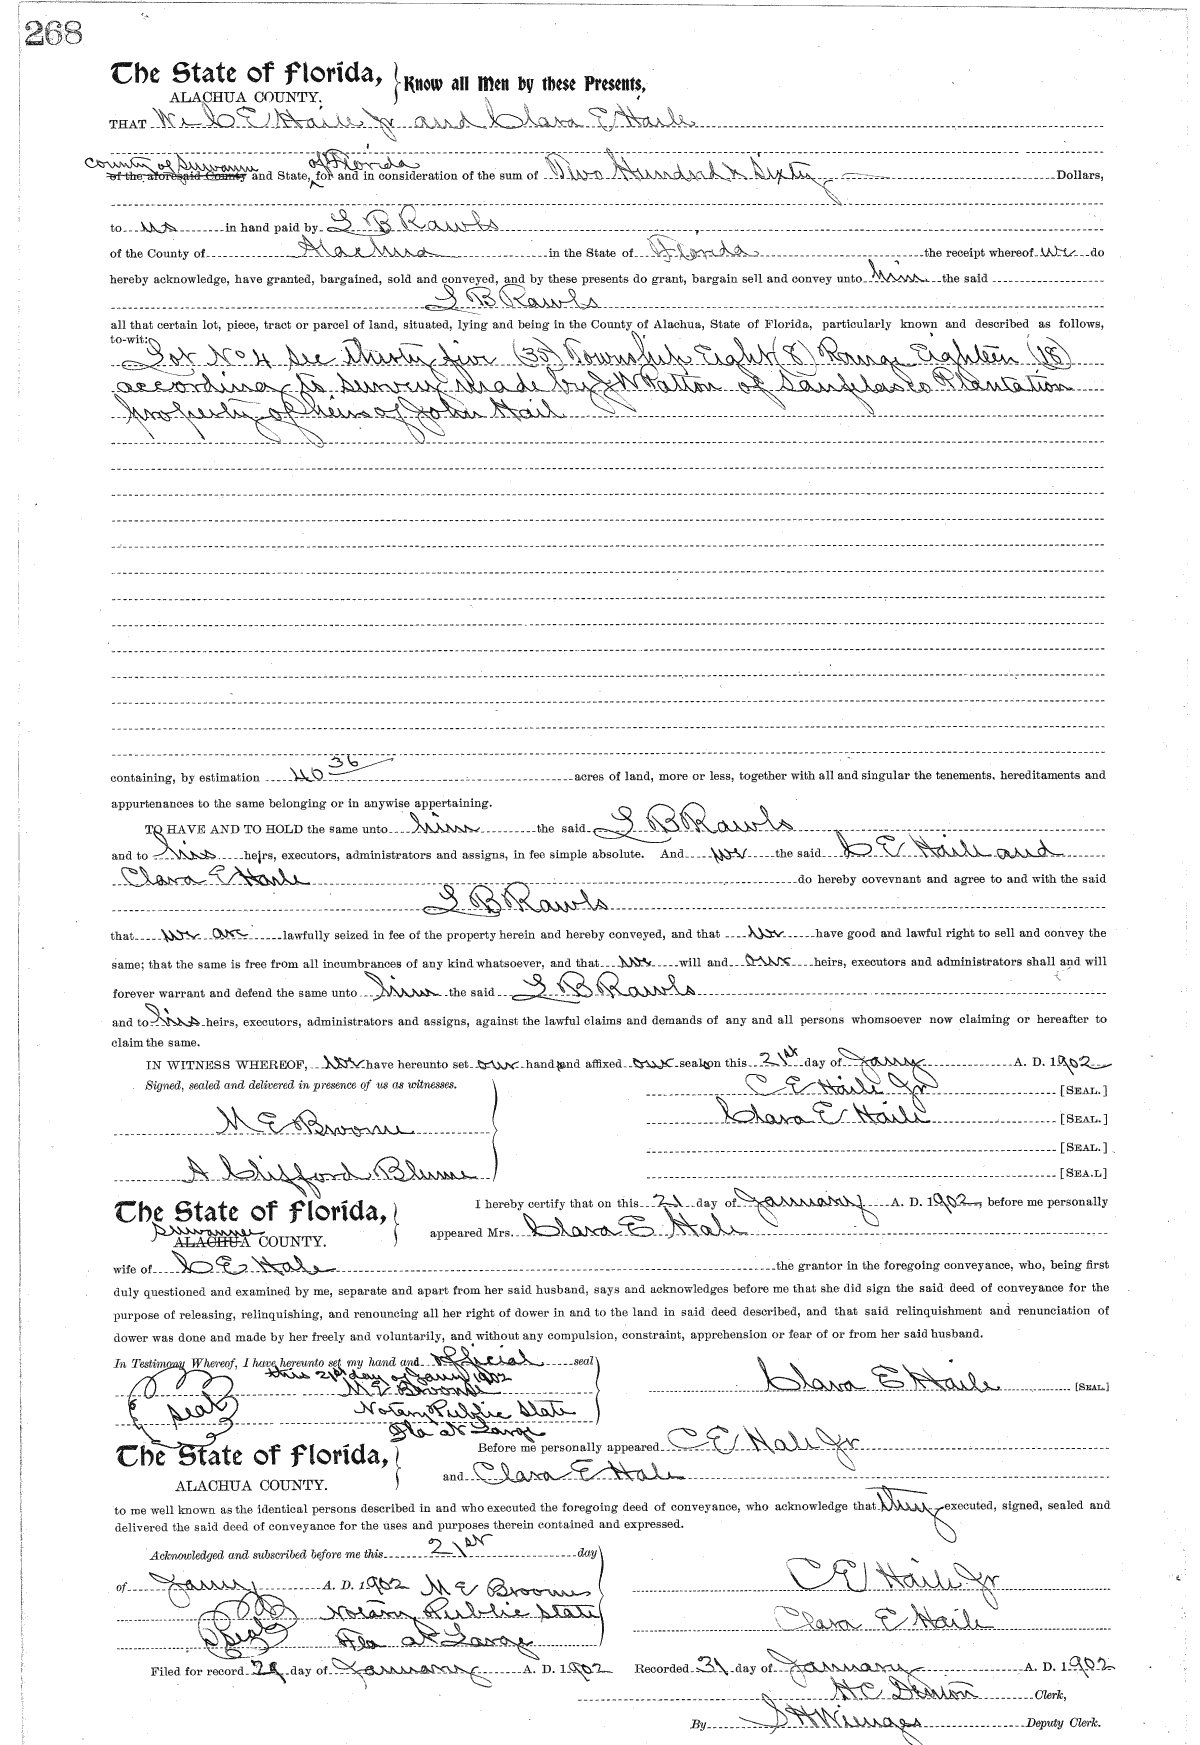 268
The State of Florida, } Know all Men by these Presents,
ALACHUA COUNTY.
THAT We C E Haile Jr and Clara E Haile
County of Suwannee of Florida
of the aforesaid County and State, for and in consideration of the sum of Two Hundred & Sixty Dollars,
to us in hand paid by L B Rawls
of the County of Alachua in the State of Florida the receipt whereof we do
hereby acknowledge, have granted, bargained, sold and conveyed, and by these presents do grant, bargain sell and convey unto him the said
L B Rawls
all that certain lot, piece, tract or parcel of land, situated, lying and being in the County of Alachua, State of Florida, particularly known and described as follows,
to-wit:
Lot No 4 Sec Thirty five (35) Township Eight (8) Range Eighteen (18)
according to survey made by J W Patton of Sanfelasco Plantation
property of heirs of John Hail
containing, by estimation 40 36 acres of land, more or less, together with all and singular the tenements, hereditaments and
appurtenances to the same belonging or in anywise appertaining.
TO HAVE AND TO HOLD the same unto him the said L B Rawls
and to his heirs, executors, administrators and assigns, in fee simple absolute. And we the said C E Haile and
Clara E Haile do hereby covevnant and agree to and with the said
L B Rawls
that we are lawfully seized in fee of the property herein and hereby conveyed, and that we have good and lawful right to sell and convey the
same; that the same is free from all incumbrances of any kind whatsoever, and that we will and our heirs, executors and administrators shall and will
forever warrant and defend the same unto him the said L B Rawls
and to his heirs, executors, administrators and assigns, against the lawful claims and demands of any and all persons whomsoever now claiming or hereafter to
claim the same.
IN WITNESS WHEREOF, we have hereunto set our hand and affixed our seals on this 21st day of Jany A. D. 1902
Signed, sealed and delivered in presence of us as witnesses. C E Haile Jr [SEAL.]
Clara E Haile [SEAL.]
M E Broome
[SEAL.]
A Clifford Blume [SEA.L]
The State of Florida, } I hereby certify that on this 21 day of January A. D. 1902, before me personally
Suwannee
ALACHUA COUNTY. appeared Mrs. Clara E Hale
wife of C E Hale the grantor in the foregoing conveyance, who, being first
duly questioned and examined by me, separate and apart from her said husband, says and acknowledges before me that she did sign the said deed of conveyance for the
purpose of releasing, relinquishing, and renouncing all her right of dower in and to the land in said deed described, and that said relinquishment and renunciation of
dower was done and made by her freely and voluntarily, and without any compulsion, constraint, apprehension or fear of or from her said husband.
In Testimony Whereof, I have hereunto set my hand and official seal
this 21st day of Jany 1902
M E Broome Clara E Haile [SEAL]
Seal Notary Public State
Fla at Large
The State of Florida, } Before me personally appeared C E Hale Jr
ALACHUA COUNTY. and Clara E Hale
to me well known as the identical persons described in and who executed the foregoing deed of conveyance, who acknowledge that they executed, signed, sealed and
delivered the said deed of conveyance for the uses and purposes therein contained and expressed.
Acknowledged and subscribed before me this 21st day
of Jany A. D. 1902 M E Broome C E Haile Jr
Notary Public State
Seal Fla at Large Clara E Haile
Filed for record 29 day of January A. D. 1902 Recorded 31 day of January A. D. 1902
H C Denton Clerk,
By S H Wienges Deputy Clerk.